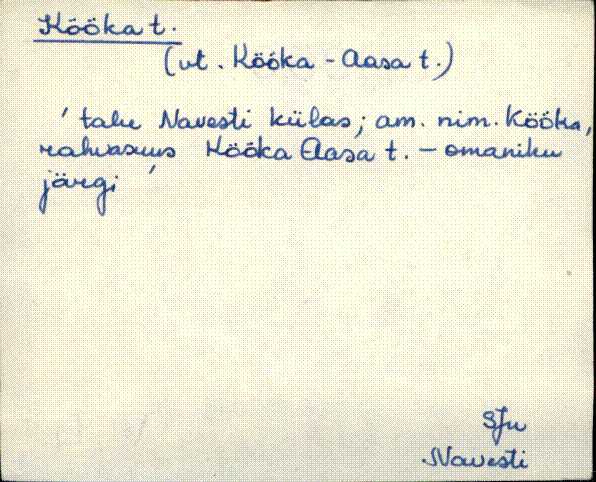 Kööka t.
(vt. Kööka - Aasa t.)
' talu Navesti külas; am. nim. Kööka,
rahvasuus Kööka Aasa t. – omaniku
järgi '
SJn
Navesti